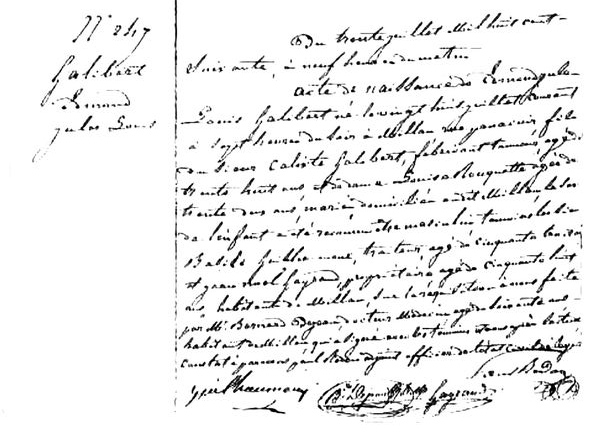 N° 247
Galibert
Edmond
Jules Louis
Du trente juillet Mil huit cent
soixante, à neuf heures du matin
acte de naissance de Edmond Jules
Louis Galibert né le vingt huit juillet courant
à sept heures du soir à Millau rue panavire fils
du sieur Calixte Galibert, fabricant tanneur, agé de
trente huit ans et de dame Louisa Rouquette agée de
trente deux ans, mariés domiciliés audit Millau, le sexe
de l'enfant a été reconnu être masculin témoins les sieurs
Basile Guillaumenc, traiteur agé de cinquante trois ans
et Gayraud, propriétaire agé de cinquante huit
ans, habitants de Millau, sur la réquisition à nous faite
par Mr Bernard docteur Médecin agé de soixante ans
habitant de Millau qui a signé avec les témoins et nous après lecture
Constaté par nous adjoint officier de l'état civil
Gayraud